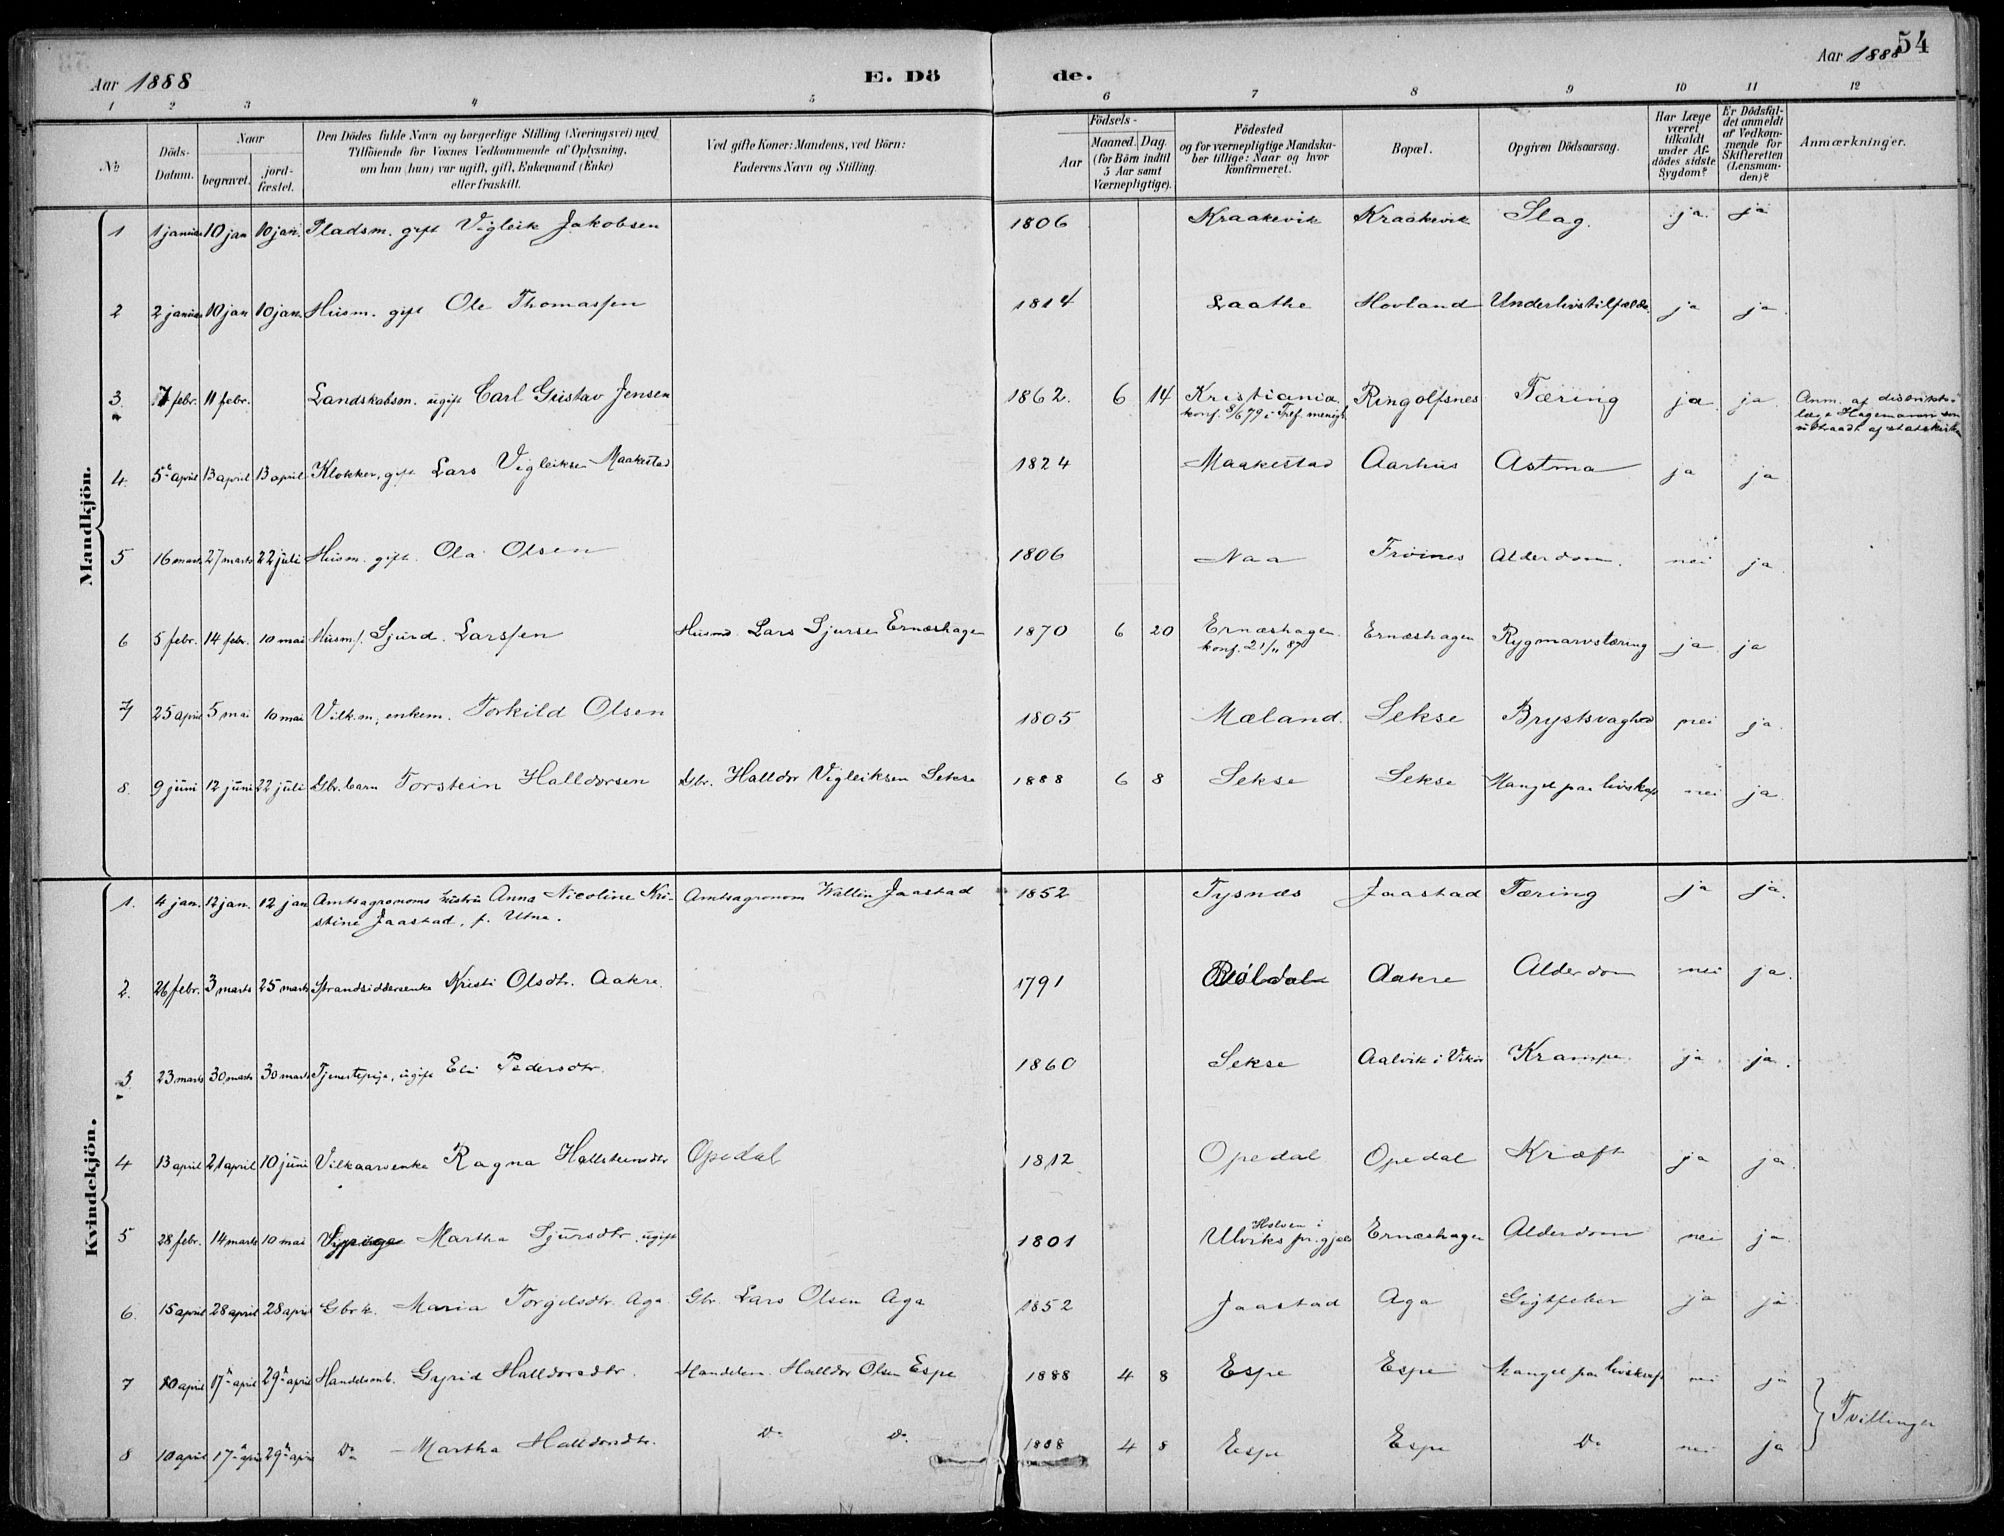 Aar 1888
E. Dö
de.
Aar 1888
54
1 2 3 4 5 6 7 8 9 10 11 12
№
Döds-
Datum.
Naar
begravet.
jord-
fæstet.
Den Dödes fulde Navn og borgerlige Stilling (Næringsvei) med
Tilföiende for Voxnes Vedkommende af Oplysning,
om han (hun) var ugift, gift, Enkemand (Enke)
eller fraskilt.
Ved gifte Koner: Mandens, ved Börn:
Faderens Navn og Stilling.
Födsels-
Aar
Maaned. Dag.
(for Börn indtil
5 Aar samt
Værnepligtige).
Födested
og for værnepligtige Mandska-
ber tillige: Naar og hvor
konfirmeret.
Bopæl.
Opgiven Dödsaarsag.
Har Læge
været
tilkaldt
under Af-
dödes sidste
Sygdom?
Er Dödsfal-
det anmeldt
af Vedkom-
mende for
Skifteretten
(Lensman-
den)?
Anmærkninger.
Mandkjön.
1 1 januar 10 jan 10 jan. Pladsm. gift Vigleik Jakobsen 1806 Kraakevik Kraakevik Slag. ja. ja
2 2 januar 10 jan 10 jan. Husm. gift Ole Thomassen 1814 Laathe Hovland Underlivstilfælde. ja ja.
3. 7 febr. 11 febr. Landskabsm. ugift Carl Gustav Jensen 1862. 6 14 Kristiania Ringolfsnes Tæring ja ja Anm. af distrikts-
konf. 8/6 79 i Tref. menigh. læge Hagemann som
udtraadt af statskirken
4. 5te april 13 april 13 april Klokker, gift Lars Vigleiksen Maakestad 1824 Maakestad Aarhus Astma ja ja
5 16 marts 27 marts 22 juli Husm. gift. Ola Olsen 1806 Naa Froines Alderdom. nei ja.
6 5 febr. 14 febr. 10 mai Husm.s. Sjurd Larssen Husmd. Lars Sjursen Ernæshagen 1870 6 20 Ernæshagen Ernæshagen Rygmarvstæring ja. ja
konf. 21/11 87
7 25 april 5 mai 10 mai Vilk.m, enkem. Torkild Olsen 1805 Mæland. Sekse Brystsvaghed nei ja.
8. 9 juni 12 juni 22 juli Gbr. barn Torstein Halldorsen Gbr. Halldor Vigleiksen Sekse 1888 6 8 Sekse Sekse Mangel paa livskraft nei ja.
Kvindekjön.
1. 4 jan. 12 jan. 12 jan Amtsagronoms hustru Anna Nicoline Kri- Amtsagronom Wallin Jaastad 1852 Tysnæs Jaastad Tæring ja ja.
stine Jaastad, f. Utne.
2. 26 febr. 3 marts 25 marts Strandsiddersenke Kristi Olsdtr. Aakre. 1791 Røldal Aakre Alderdom nei ja.
3 23 marts 30 marts 30 marts Tjenestepige, ugift Eli Pedersdtr. 1860 Sekse Aalvik i Vikør Krampe ja ja.
4 13 april 21 april 10 juni Vilkaarsenke Ragna Hallsteinsdtr Opedal 1812 Opedal Opedal Kræft ja ja.
5 28 febr. 14 marts 10 mai Martha Sjursdtr. ugift 1801 Holven i
Ulviks pr.gjæld Ernæshagen Alderdom nei ja.
6. 15 april 28 april 28 april Gbrk. Maria Torgilsdtr. Aga. Gbr. Lars Olsen Aga 1852 Jaastad Aga Gigtfeber ja ja.
7 10 april 17de april 29de april Handelsmb. Gyrid Halldorsdtr. Handelsm. Halldor Olsen Espe 1888 4 8 Espe Espe Mangel paa livskraft nei ja
8 10 april 17de april 29de april Do – Martha Halldorsdtr. Do Do. 1888 4 8 Espe Espe Do nei ja
Tvillinger